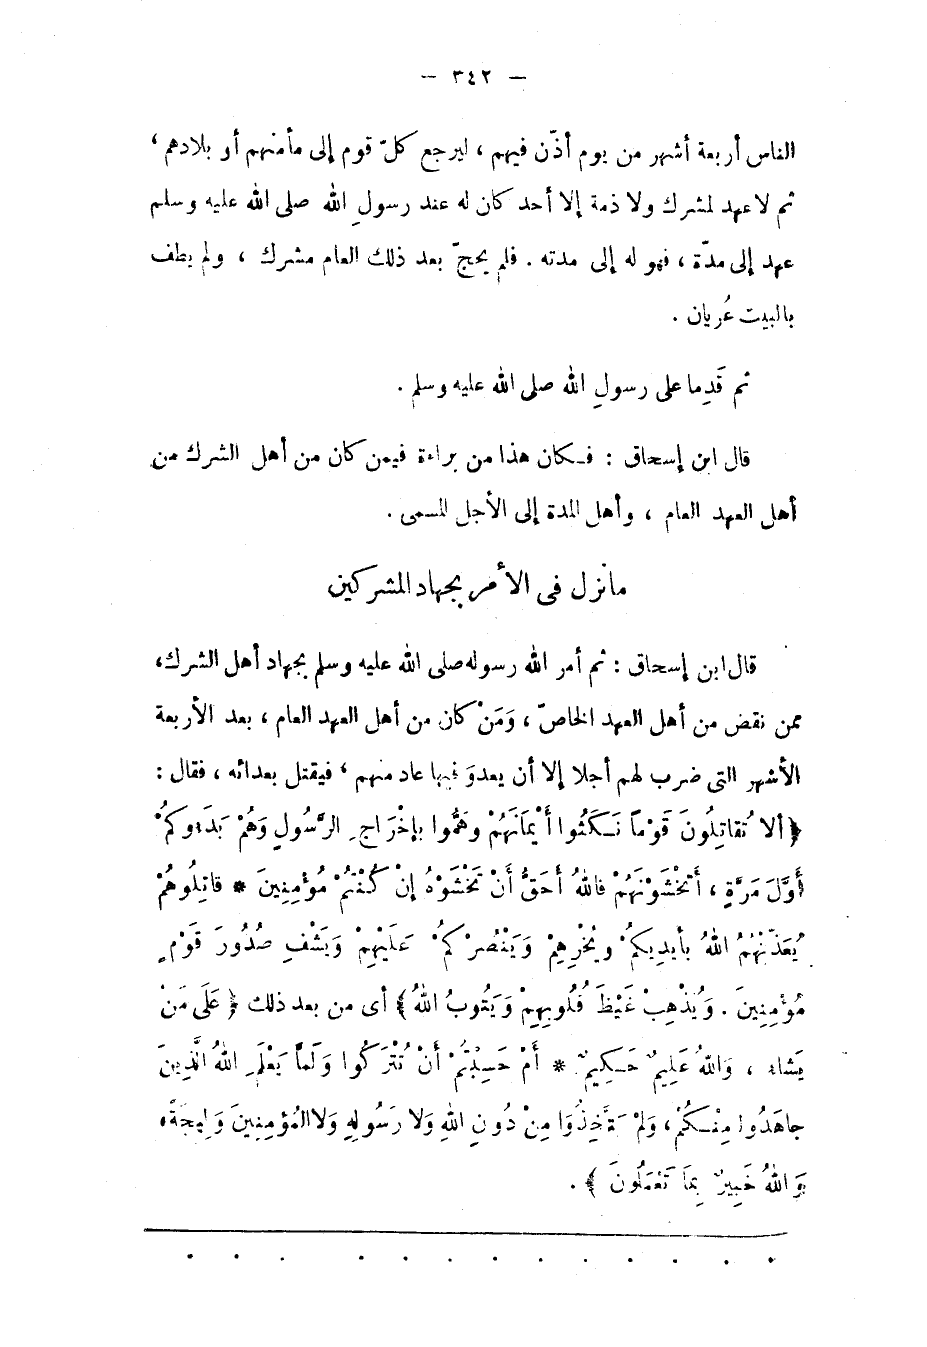 — ٣٤٢ —
الناس أربعة أشهر من يوم أذّن فيهم ، ليرجع كلّ قوم إلى مأمنهم أو بلادهم ،
ثم لا عهد لمشرك ولا ذمة إلا أحد كان له عند رسولِ الله صلى الله عليه وسلم
عهد إلى مدّة ، فهو له إلى مدته . فلم يحجّ بعد ذلك العام مشرك ، ولم يطف
بالبيت عُريان .
ثم قَدِما على رسولِ الله صلى الله عليه وسلم .
قال ابن إسحاق : فكان هذا من براءة فيمن كان من أهل الشرك من
أهل العهد العام ، وأهل المدة إلى الأجل المسمى .
مانزل فى الأمر بجهاد المشركين
قال ابن إسحاق : ثم أمر الله رسوله صلى الله عليه وسلم بجهاد أهل الشرك،
ممن نقض من أهل العهد الخاصّ ، وَمَنْ كان من أهل العهد العام ، بعد الأربعة
الأشهر التى ضرب لهم أجلا إلا أن يعدوَ فيها عاد منهم ، فيقتل بعدائه ، فقال :
﴿ ألا تُقاتِلُونَ قَوْماً نَكَثُوا أَيْمَانَهُمْ وهَمُّوا بإِخْرَاجِ الرَّسُولِ وَهُمْ بَدَءوكُمْ
أَوَّلَ مَرَّةٍ ، أَتَخْشَوْنَهُمْ فاللهُ أَحَقُّ أَنْ تَخْشَوْهُ إنْ كُنْتُمْ مُؤْمِنِينَ * قاتِلُوهُمْ
يُعَذِّبْهُمُ اللهُ بأيدِيكُمْ ويُخْزِهِمْ وَيَنْصُرْكُمْ عَلَيْهِمْ وَيَشْفِ صُدُورَ قَوْمٍ
مُؤْمِنِينَ . وَيُذْهِبْ غَيْظَ قُلُوبِهِمْ وَيَتُوبُ اللهُ﴾ أى من بعد ذلك ﴿ عَلَى مَنْ
يَشاء ، وَاللهُ عَلِيمٌ حَكِيمٌ * أَمْ حَسِبْتُمْ أنْ تُتْرَكُوا وَلَمَّا يَعْلَمِ اللهُ الَّذِينَ
جاهَدُوا مِنْكُمْ، وَلَمْ يَتَّخِذُوا مِنْ دُونِ اللهِ وَلا رَسُولِهِ وَلا المُؤْمِنِينَ وَلِيجَةً،
وَاللهُ خَبِيرٌ بِمَا تَعْمَلُونَ ﴾ .
. . . . . . . . . . . . .